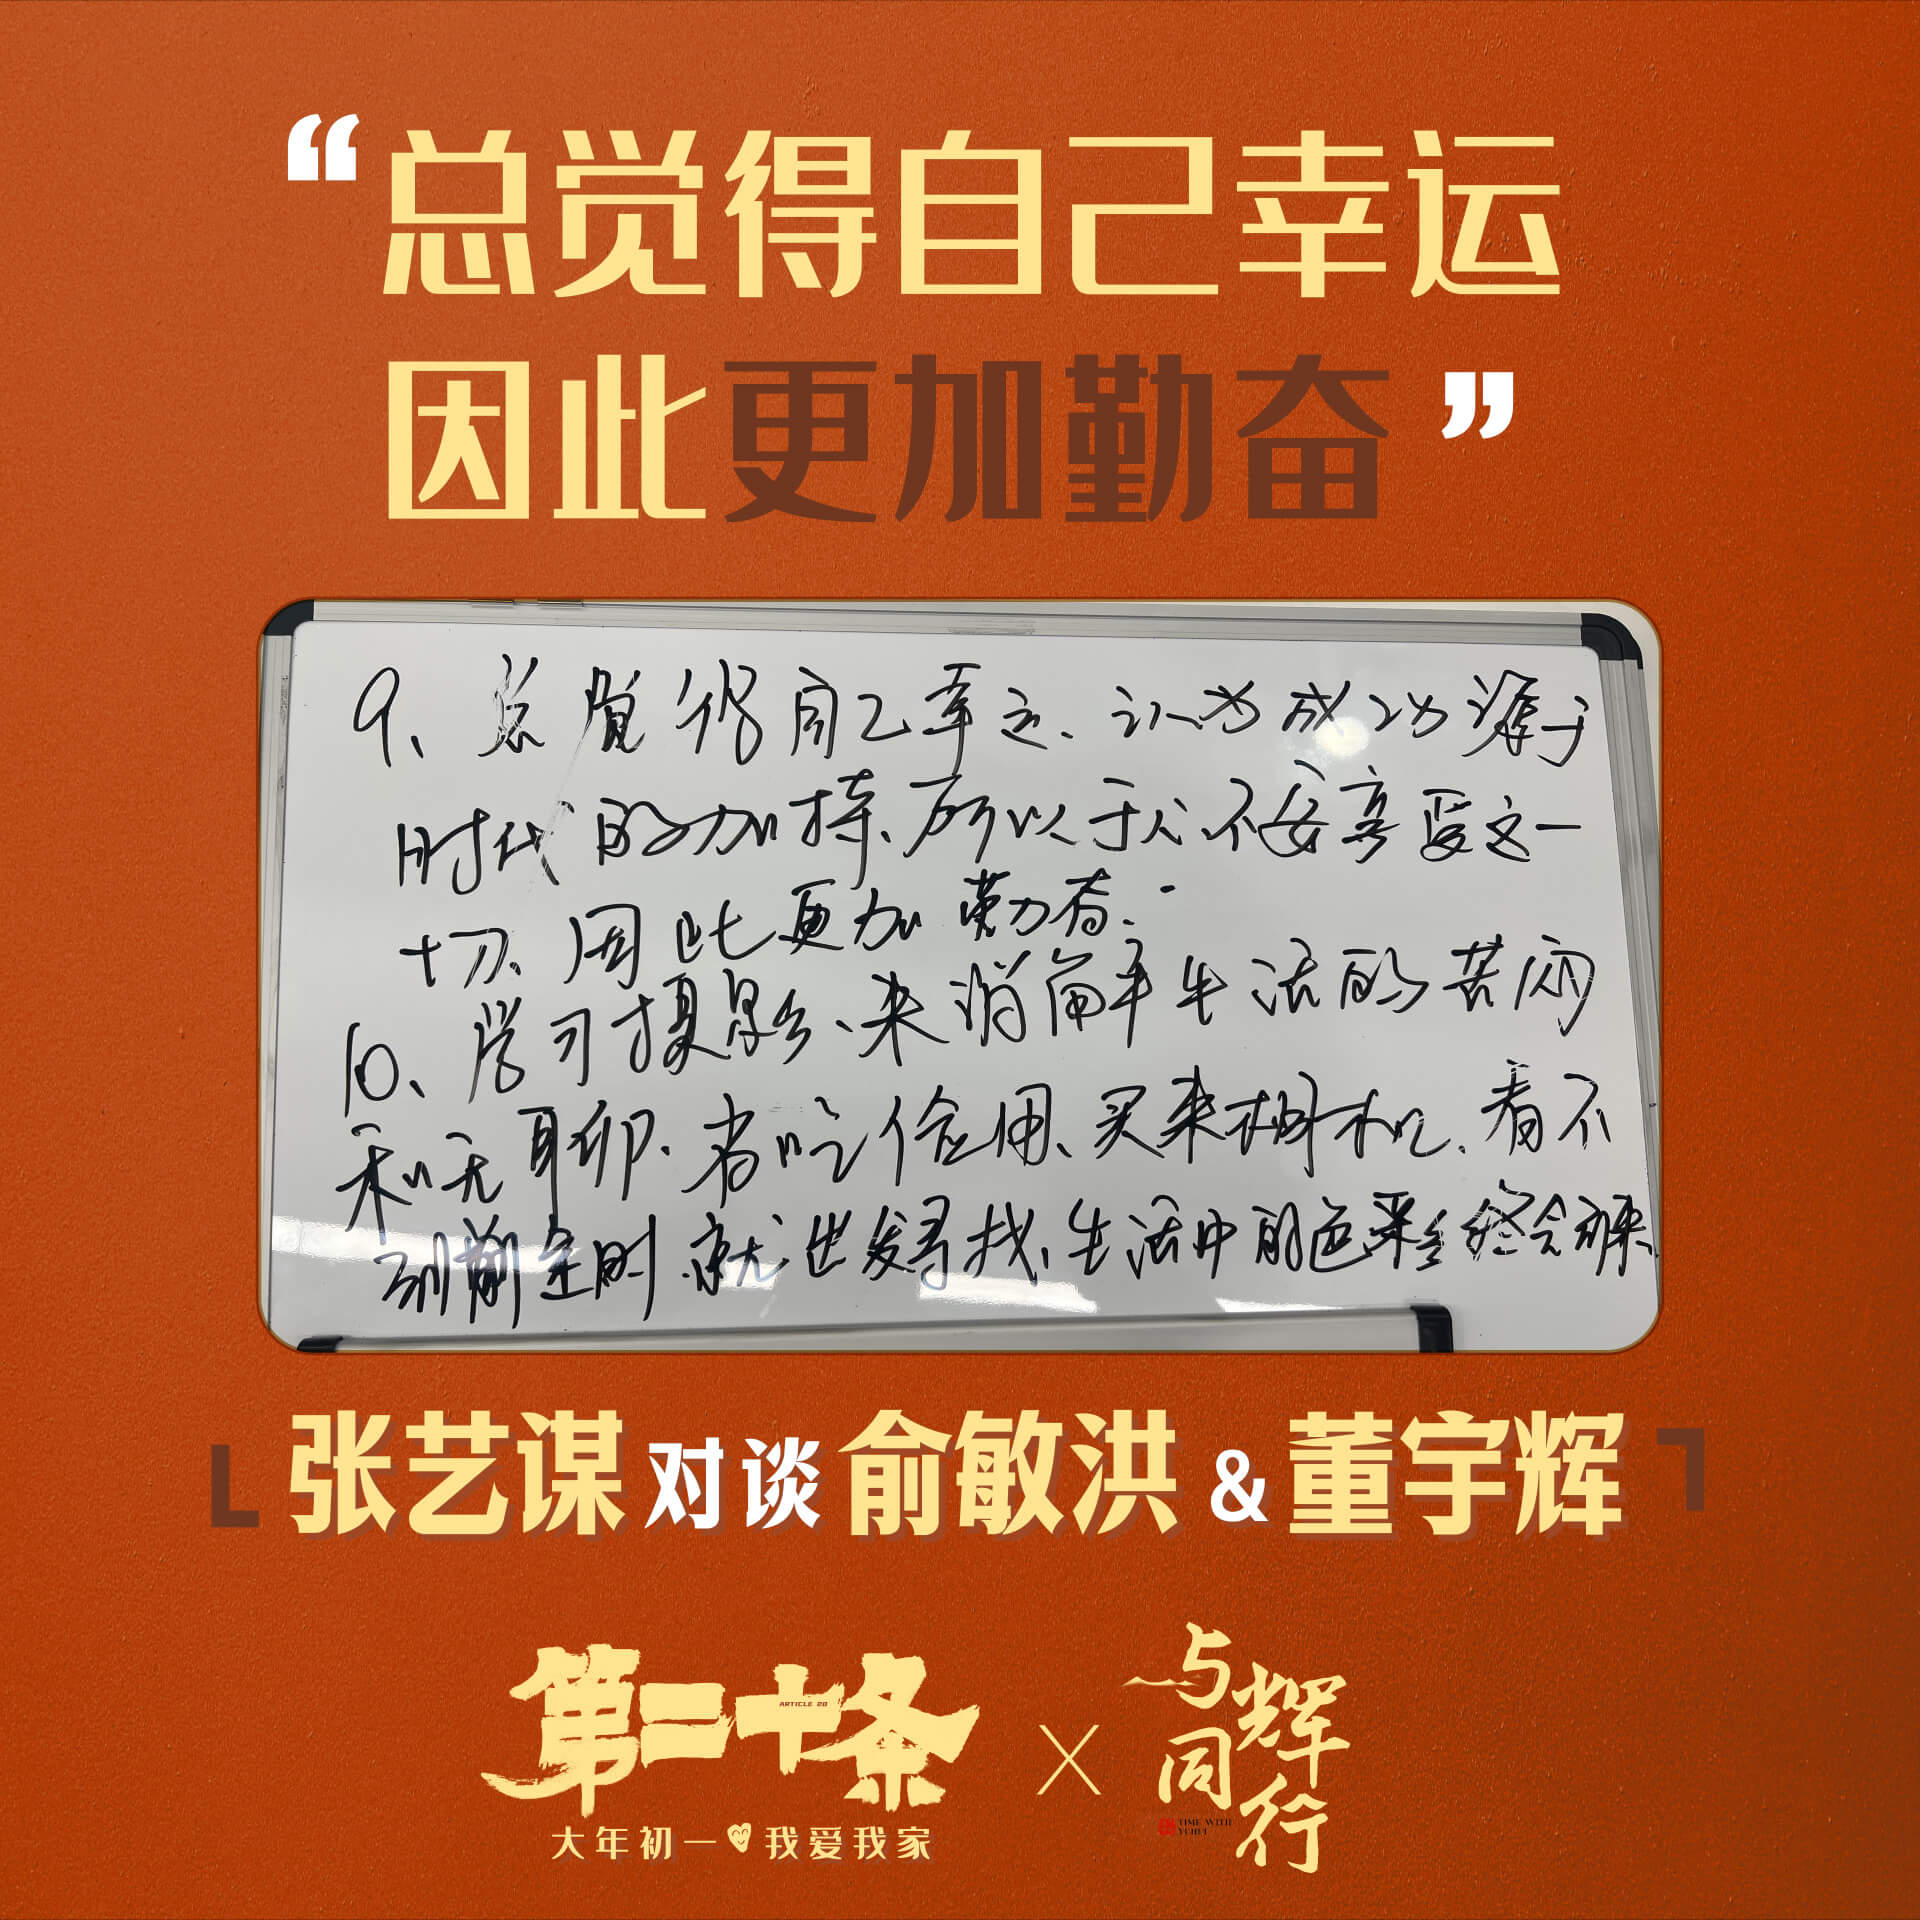 “总觉得自己幸运
因此更加勤奋”
9、总觉得自己幸运、认为成功源于
时代的加持、所以于心不安享受这一
切、因此更加勤奋.
10、学习摄影、来消解生活的苦闷
和无聊、省吃俭用、买来相机、看不
到前途时、就出发寻找、生活中的色彩终会到来
张艺谋对谈俞敏洪&董宇辉
第二十条
ARTICLE 20
大年初一我爱我家
×
与辉同行
TIME WITH
YUHUI